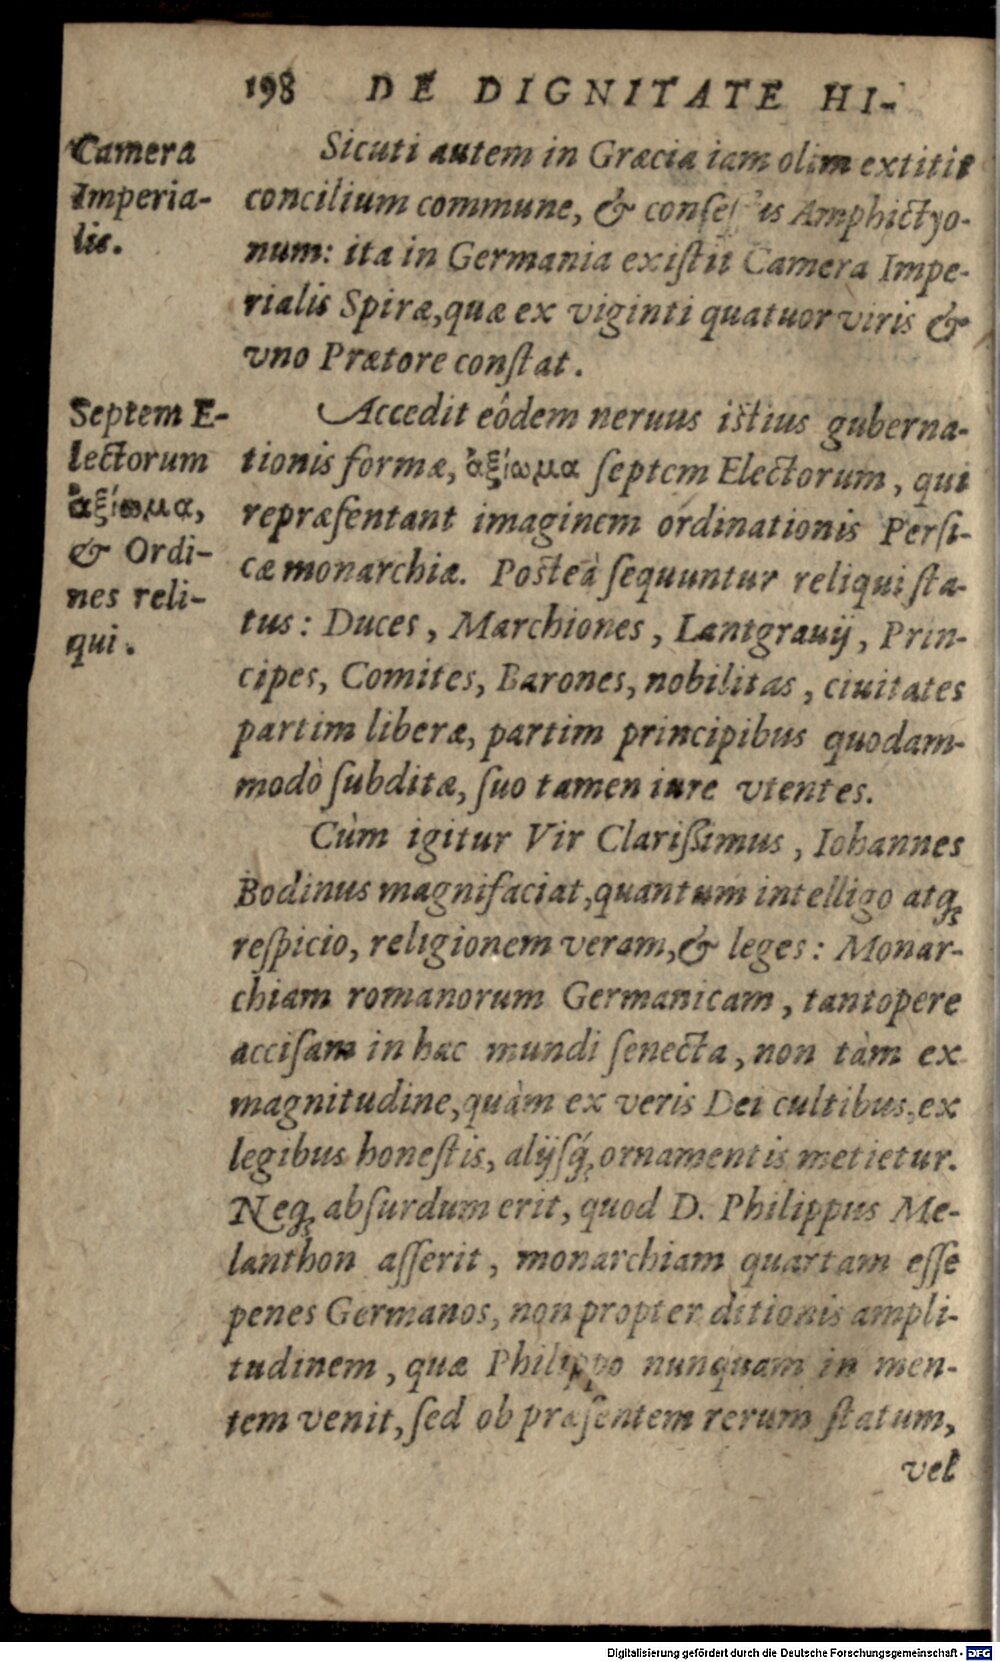 198 DE DIGNITATE HI-
Camera
Imperia-
lis.
Sicuti autem in Græcia iam olim extitit
concilium commune, & conseſſus Amphictyo-
num: ita in Germania exiſtit Camera Impe-
rialis Spiræ, quæ ex viginti quatuor viris &
vno Prætore conſtat.
Septem E-
lectorum
ἀξίωμα,
& Ordi-
nes reli-
qui.
Accedit eódem neruus iſtius guberna-
tionis formæ, ἀξίωμα ſeptem Electorum, qui
repræſentant imaginem ordinationis Perſi-
cæ monarchiæ. Poſteà ſequuntur reliqui ſta-
tus: Duces, Marchiones, Lantgrauij, Prin-
cipes, Comites, Barones, nobilitas, ciuitates
partim liberæ, partim principibus quodam-
modò ſubditæ, ſuo tamen iure vtentes.
Cùm igitur Vir Clariſſimus, Iohannes
Bodinus magnifaciat, quantum intelligo atqꝫ
reſpicio, religionem veram, & leges: Monar-
chiam romanorum Germanicam, tantopere
acciſam in hac mundi ſenecta, non tàm ex
magnitudine, quàm ex veris Dei cultibus, ex
legibus honeſtis, alijſqꝫ́ ornamentis metietur.
Neqꝫ abſurdum erit, quod D. Philippus Me-
lanthon aſſerit, monarchiam quartam eſſe
penes Germanos, non propter ditionis ampli-
tudinem, quæ Philippo nunquam in men-
tem venit, ſed ob præſentem rerum ſtatum,
vel
Digitalisierung gefördert durch die Deutsche Forschungsgemeinschaft - DFG